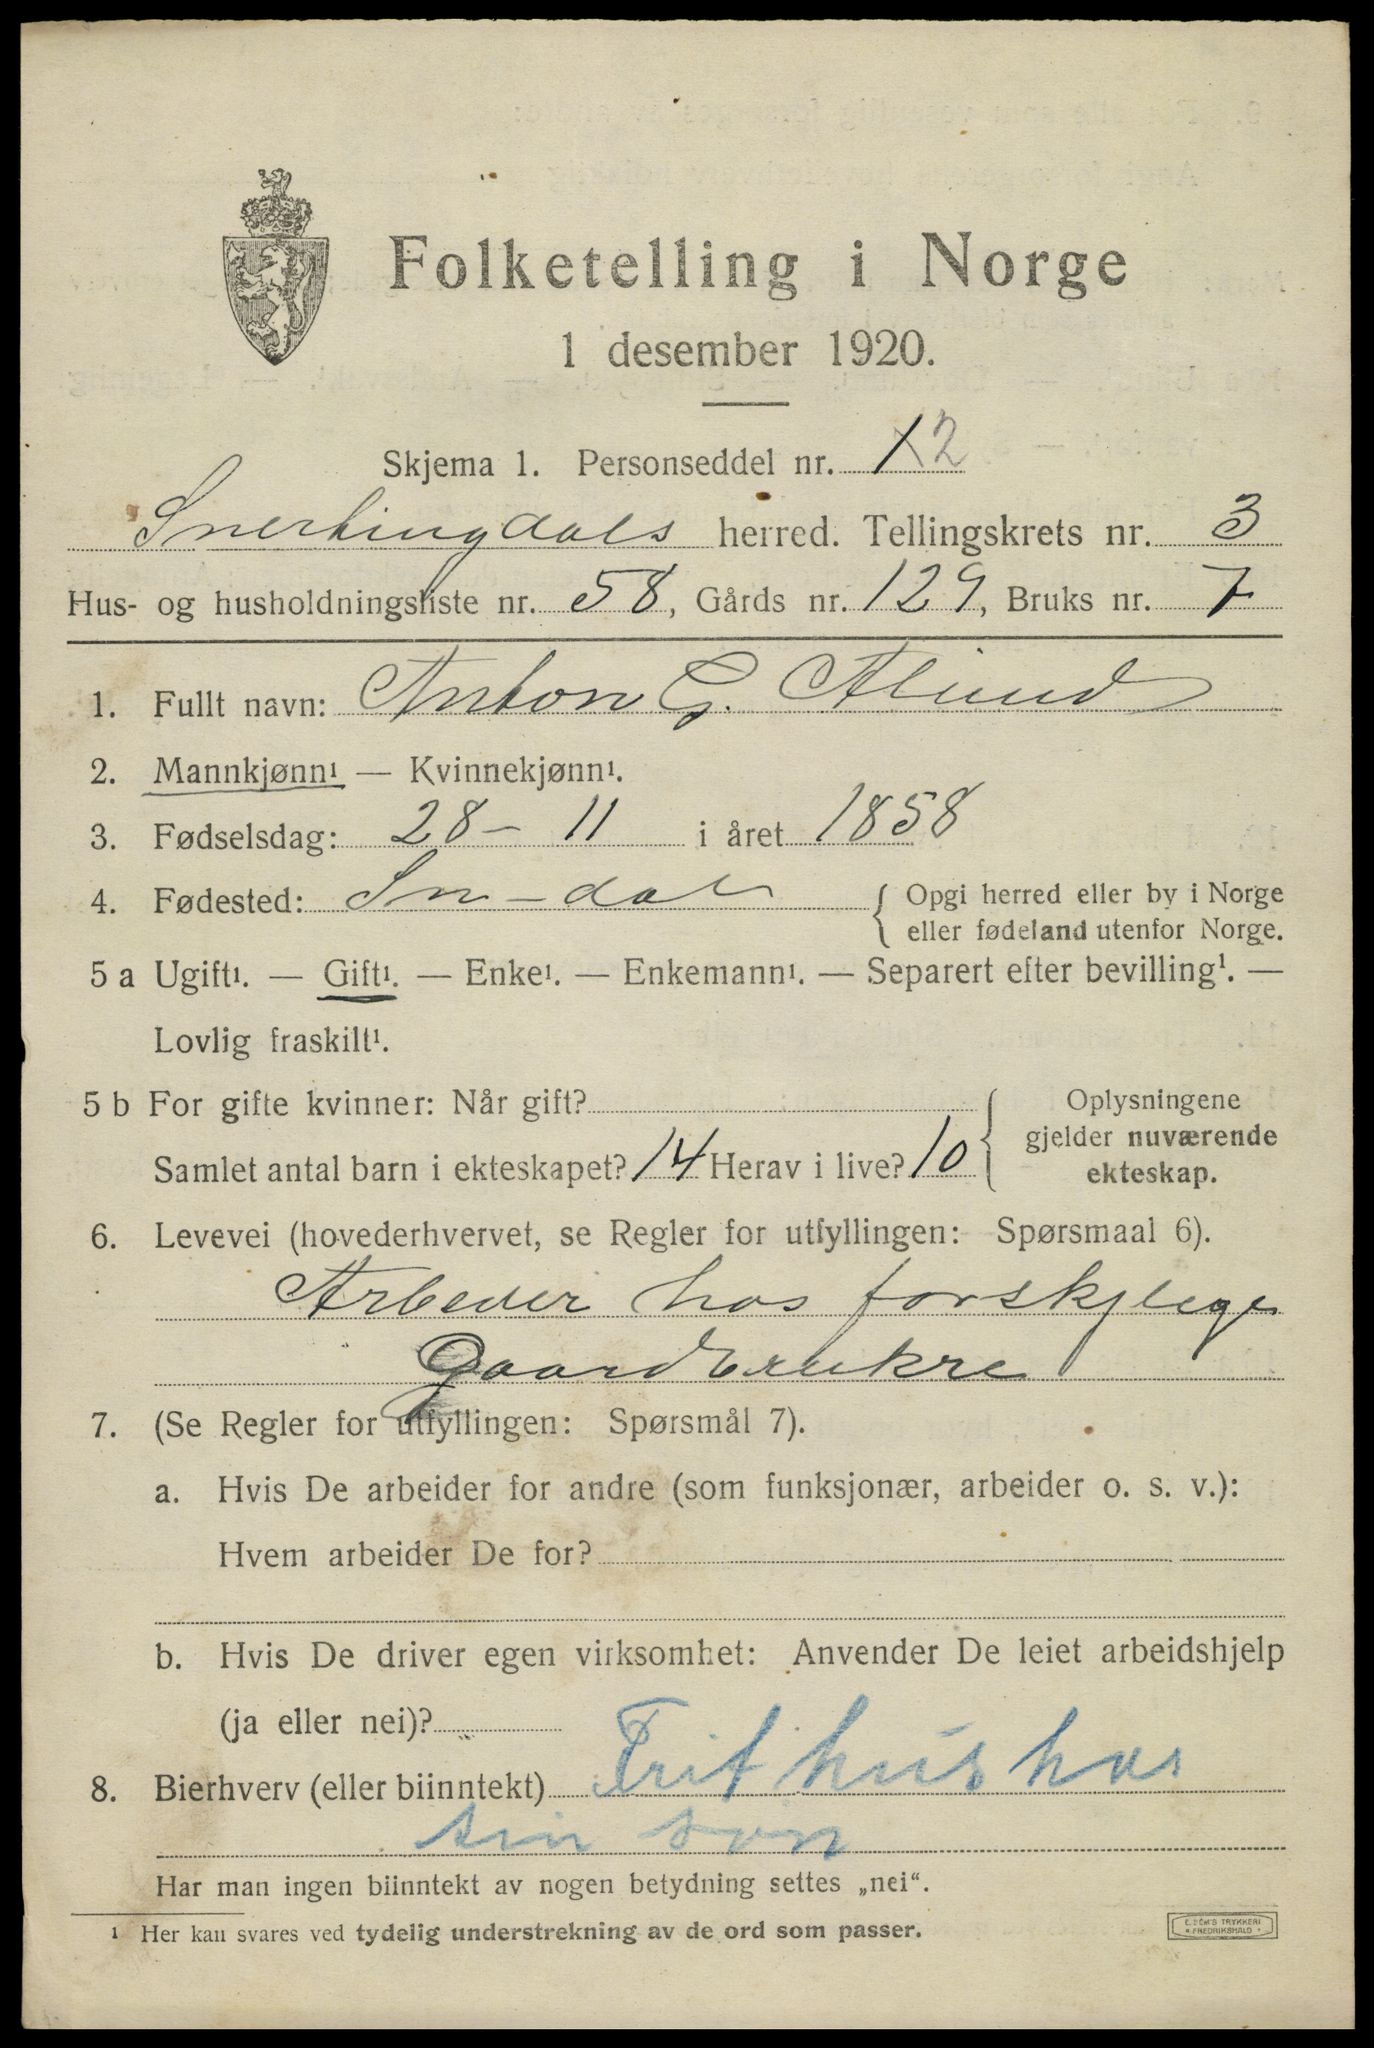 Folketelling i Norge
1 desember 1920.
Skjema 1. Personseddel nr. 12
Snertingdals herred. Tellingskrets nr. 3
Hus- og husholdningsliste nr. 58, Gårds nr. 129, Bruks nr. 7
1. Fullt navn: Anton G. Alund
2. Mannkjønn¹ — Kvinnekjønn¹.
3. Fødselsdag: 28 – 11 i året 1858
4. Fødested: Sn-dal { Opgi herred eller by i Norge
eller fødeland utenfor Norge.
5 a Ugift¹. — Gift¹. — Enke¹. — Enkemann¹. — Separert efter bevilling¹. —
Lovlig fraskilt¹.
5 b For gifte kvinner: Når gift?
Samlet antal barn i ekteskapet? 14 Herav i live? 10
{ Oplysningene
gjelder nuværende
ekteskap.
6. Levevei (hovederhvervet, se Regler for utfyllingen: Spørsmaal 6).
Arbeder hos forskjelige
Gaardbrukre
7. (Se Regler for utfyllingen: Spørsmål 7).
a. Hvis De arbeider for andre (som funksjonær, arbeider o. s. v.):
Hvem arbeider De for?
b. Hvis De driver egen virksomhet: Anvender De leiet arbeidshjelp
(ja eller nei)?
8. Bierhverv (eller biinntekt) Frit hus hos
sin søn
Har man ingen biinntekt av nogen betydning settes „nei“.
¹ Her kan svares ved tydelig understrekning av de ord som passer.
E. SEM'S TRYKKERI
FREDRIKSHALD